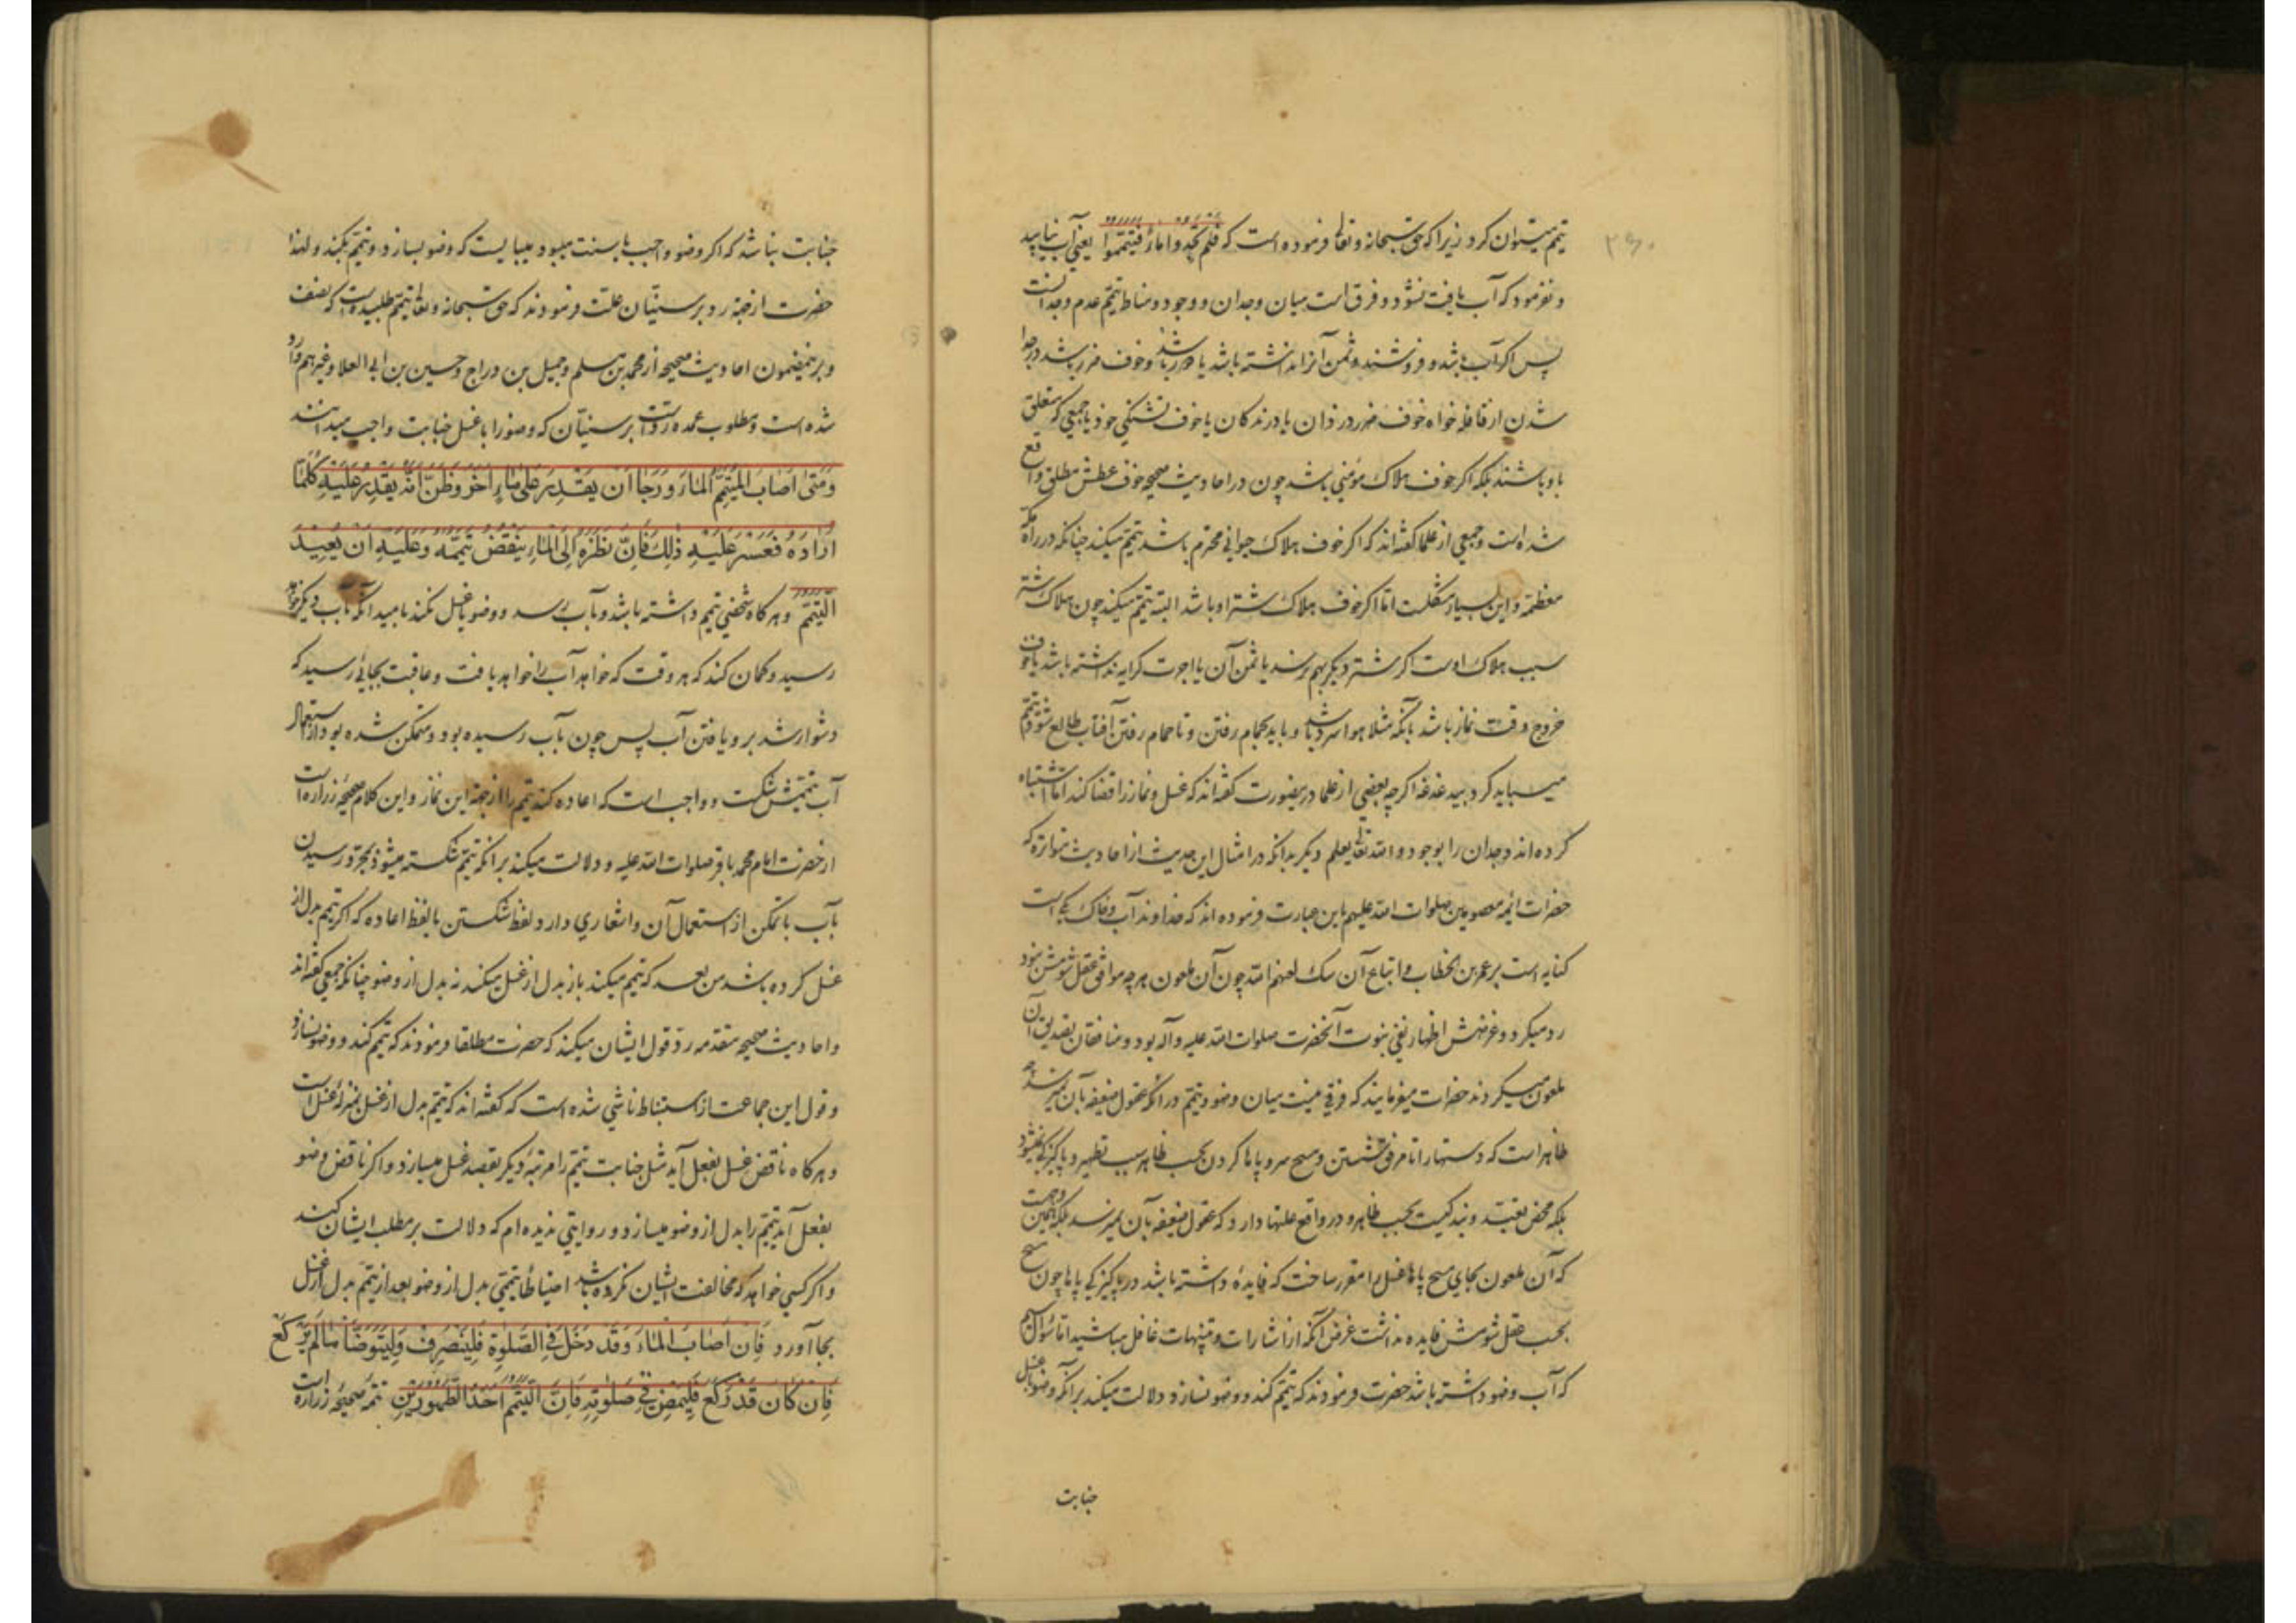 ۲۶۰
تیمم میتوان کرد زیرا که حق سبحانه و تعالی فرموده است که فلم تجدوا ماءً فتیمّموا یعنی آب نیابید
و نفرمود که آب یافت نشود و فرق است میان وجدان و وجود و مناط تیمم عدم وجدانست
پس اگر آب باشد و فروشند و ثمن آنرا نداشته باشد یا ضرر باشد و خوف ضرر باشد در جدا
شدن از قافله خواه خوف ضرر دزدان یا درندکان یا خوف تشنگی خود یا جمعی که متعلق
باو باشند بلکه اگر خوف هلاک مؤمنی باشد چون در احادیث صحیحه خوف عطش مطلق واقع
شده است و جمعی از علما گفته‌اند که اگر خوف هلاک حیوانی محترم باشد تیمم میکند چنانکه در راه مکه
معظمه و این بسیار مشکلست اما اگر خوف هلاک شتر او باشد البته تیمم میکند چون هلاک شتر
سبب هلاک اوست اگر شتر دیگر بهم نرسد یا ثمن آن یا اجرت کرایه نداشته باشد یا خوف
خروج وقت نماز باشد بآنکه مثلا هوا سرد باشد و باید بحمام رفتن و تا حمام رفتن آفتاب طالع شود تیمم
میباید کرد بیدغدغه اگرچه بعضی از علما درینصورت گفته‌اند که غسل و نماز را قضا کند اما اشتباه
کرده‌اند وجدان را بوجود و الله تعالی یعلم دیگر بدانکه در امثال این حدیث از احادیث متواتره که
حضرات ائمه معصومین صلوات الله علیهم باین عبارت فرموده‌اند که خداوند آب و خاک یکی است
کنایه است بر عمر بن الخطاب و اتباع آن سک لعنهم الله چون آن ملعون هر چه موافق عقل شومش نبود
رد میکرد و غرضش اظهار نفی نبوت آنحضرت صلوات الله علیه و آله بود و منافقان تصدیق آن
ملعون میکردند حضرات میفرمایند که فرقی نیست میان وضو و تیمم در آنکه عقول ضعیفه بآن نمیرسد چه
ظاهر است که دستها را تا مرفق شستن و مسح سر و پاها کردن بحسب ظاهر سبب تطهیر و پاکیزکی نمیشود
بلکه محض تعبد و بندکیست بحسب ظاهر و در واقع علتها دارد که عقول ضعیفه بآن نمیرسد بلکه همین جهت
که آن ملعون بجای مسح پاها غسل را مقرر ساخت که فایدهٔ داشته باشد در پاکیزکی پاها چون مسح
بحسب عقل شومش فایده نداشت غرض آنکه از اشارات و تنبیهات غافل مباشید اما سؤال سیم
که آب وضو داشته باشد حضرت فرمودند که تیمم کند و وضو نسازد دلالت میکند بر آنکه وضو با غسل
جنابت
جنابت نباشد که اگر وضو واجب یا سنت میبود میبایست که وضو بسازد و تیمم بکند و لهذا
حضرت از جهة رد بر سنیان علت فرمودند که حق سبحانه و تعالی تیمم طلبیده است که نصف
و بر همین مضمون احادیث صحیحه از محمد بن مسلم و جمیل بن دراج و حسین بن ابی العلا و غیرهم وارد
شده است و مطلوب عمده رد است بر سنیان که وضو را با غسل جنابت واجب میدانند
وَمَتَی اَصَابَ المُتَیَمِّمُ المَاءَ وَرَجَا اَن یَقدِرَ عَلَی مَاءٍ اٰخَرَ وَظَنَّ اَنَّهُ یَقدِرُ عَلَیهِ کُلَّمَا
اَرَادَهُ فَعَسُرَ عَلَیهِ ذٰلِکَ فَاِنَّ نَظَرَهُ اِلَی المَاءِ یَنقُضُ تَیَمُّمَهُ وَعَلَیهِ اَن یُعِیدَ
التَّیَمُّمَ و هرکاه شخصی تیمم داشته باشد و بآب رسد و وضو یا غسل نکند بامید آنکه بآب دیکر خواهد
رسید و کمان کند که هر وقت که خواهد آب را خواهد یافت و عاقبت بجائی رسید که
دشوار شد برو یافتن آب پس چون بآب رسیده بود و متمکن شده بود از استعمال
آب تیممش شکست و واجب است که اعاده کند تیمم را از جهة این نماز و این کلام صحیحهٔ زراره است
از حضرت امام محمد باقر صلوات الله علیه و دلالت میکند بر آنکه تیمم شکسته میشود بمجرد رسیدن
بآب با تمکن از استعمال آن و اشعاری دارد لفظ شکستن با لفظ اعاده که اگر تیمم بدل از
غسل کرده باشد من بعد که تیمم میکند باز بدل از غسل میکند نه بدل از وضو چنانکه جمعی گفته‌اند
و احادیث صحیحه متقدمه رد قول ایشان میکند که حضرت مطلقا فرمودند که تیمم کند و وضو نسازد
و قول این جماعت از استنباط ناشی شده است که گفته‌اند که تیمم بدل از غسل بمنزلهٔ غسل است
و هرکاه ناقض غسل بفعل آید مثل جنابت تیمم را مرتبهٔ دیکر بقصد غسل میسازد و اگر ناقض وضو
بفعل آید تیمم را بدل از وضو میسازد و روایتی ندیده‌ام که دلالت بر مطلب ایشان کند
و اگر کسی خواهد که مخالفت ایشان نکرده باشد احتیاطا تیممی بدل از وضو بعد از تیمم بدل از غسل
بجا آورد فَاِن اَصَابَ المَاءَ وَقَد دَخَلَ فِی الصَّلٰوةِ فَلیَنصَرِف وَلیَتَوَضَّأ مَا لَم یَرکَع
فَاِن کَانَ قَد رَکَعَ فَلیَمضِ فِی صَلٰوتِهِ فَاِنَّ التَّیَمُّمَ اَحَدُ الطَّهُورَینِ تتمهٔ صحیحهٔ زراره است